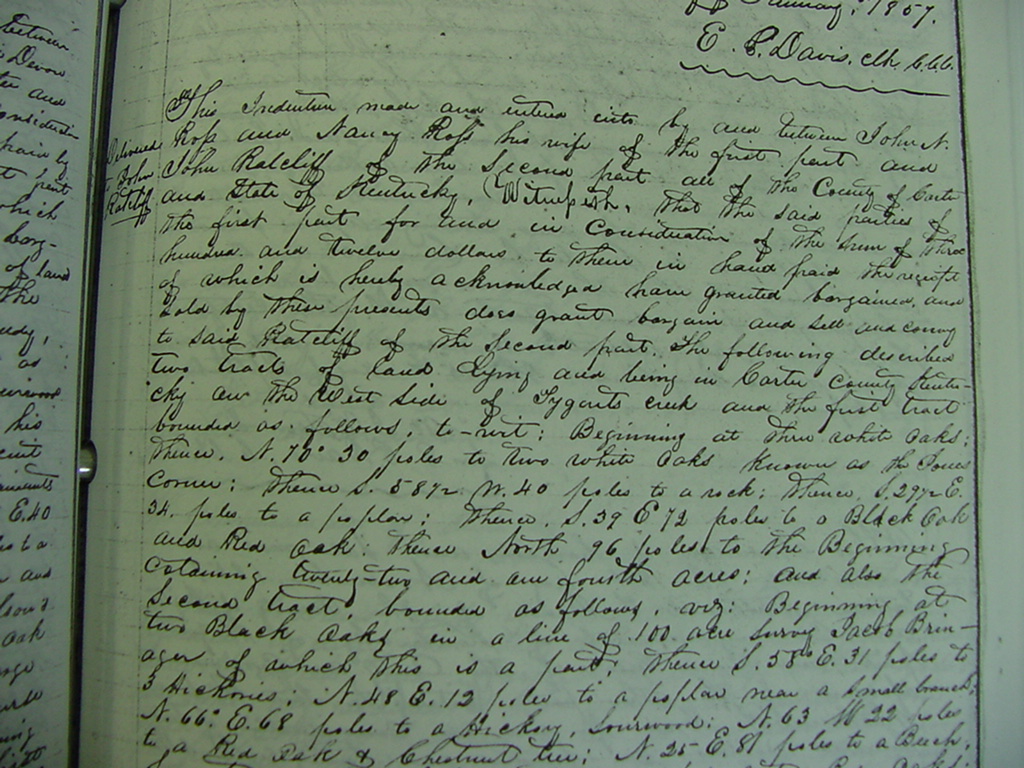 January, 1857.
E. P. Davis. clk C.C.C.
This Indenture made and entered into by and between John N.
Ross and Nancy Ross his wife of the first part and
John Ratcliff of the Second part all of the County of Carter
and State of Kentucky, Witnesseth, that the said parties of
the first part for and in Consideration of the sum of three
hundred and twelve dollars to them in hand paid the receipt
of which is hereby acknowledged have granted bargained, and
Sold by these presents does grant bargain and sell and convey
to said Ratcliff of the Second part. The following described
two tracts of land Lying and being in Carter County Kentu-
cky on the West Side of Tygarts creek and the first tract
bounded as follows, to-wit; Beginning at three white oaks;
Thence, N. 70° 30 poles to two white oaks known as the Jones
Corner; thence S. 58½ W. 40 poles to a rock; thence, S. 29½ E.
34. poles to a poplar; thence, S. 39 E 72 poles to a Black Oak
and Red Oak; thence North 96 poles to the Beginning
Containing twenty-two and one fourth acres; and also the
Second tract, bounded as follows, viz: Beginning at
two Black Oaks in a line of 100 acre survey Jacob Brin-
ager of which this is a part; thence S. 58° E. 31 poles to
3 Hickories; N. 48 E. 12 poles to a poplar near a small branch;
N. 66° E. 68 poles to a Hickory, Sourwood; N. 63 W 22 poles
to a Red Oak & Chestnut tree; N. 25 E. 81 poles to a Beech,
Delivered
to John
Ratcliff
between
Devore
and
which
of land
the
as
his
E. 40
and
oak